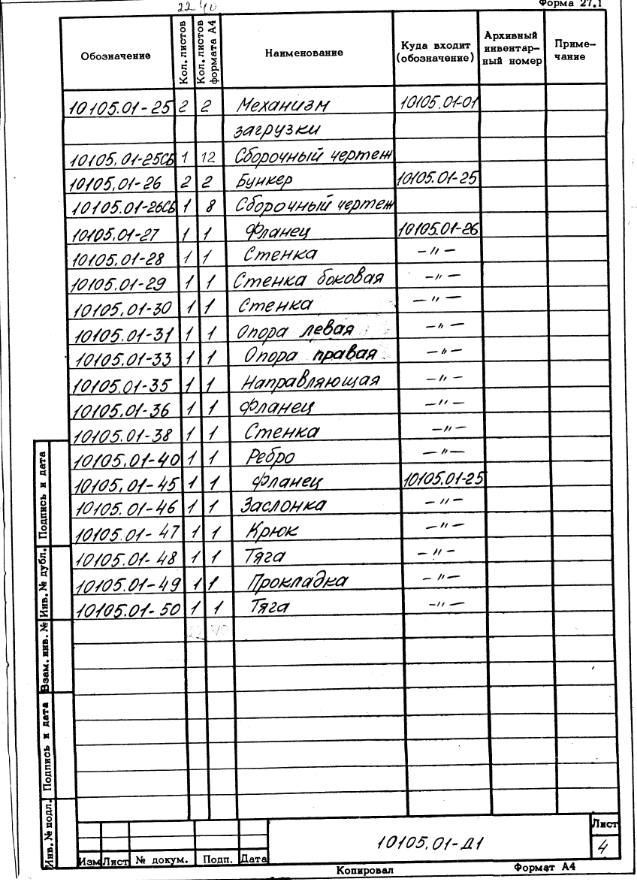 22 40
Форма 27.1
Обозначение Кол. листов Кол. листов формата А4 Наименование Куда входит (обозначение) Архивный инвентарный номер Примечание
10105.01-25 2 2 Механизм 10105.01-01
загрузки
10105.01-25СБ 1 12 Сборочный чертеж
10105.01-26 2 2 Бункер 10105.01-25
10105.01-26СБ 1 8 Сборочный чертеж
10105.01-27 1 1 Фланец 10105.01-26
10105.01-28 1 1 Стенка -"-
10105.01-29 1 1 Стенка боковая -"-
10105.01-30 1 1 Стенка -"-
10105.01-31 1 1 Опора левая -"-
10105.01-33 1 1 Опора правая -"-
10105.01-35 1 1 Направляющая -"-
10105.01-36 1 1 Фланец -"-
10105.01-38 1 1 Стенка -"-
10105.01-40 1 1 Ребро -"-
10105.01-45 1 1 Фланец 10105.01-25
10105.01-46 1 1 Заслонка -"-
10105.01-47 1 1 Крюк -"-
10105.01-48 1 1 Тяга -"-
10105.01-49 1 1 Прокладка -"-
10105.01-50 1 1 Тяга -"-
Подпись и дата
Инв. № дубл.
Взам. инв. №
Подпись и дата
Инв. № подл.
Изм Лист № докум. Подп. Дата
10105.01-Д1
Лист
4
Копировал
Формат А4